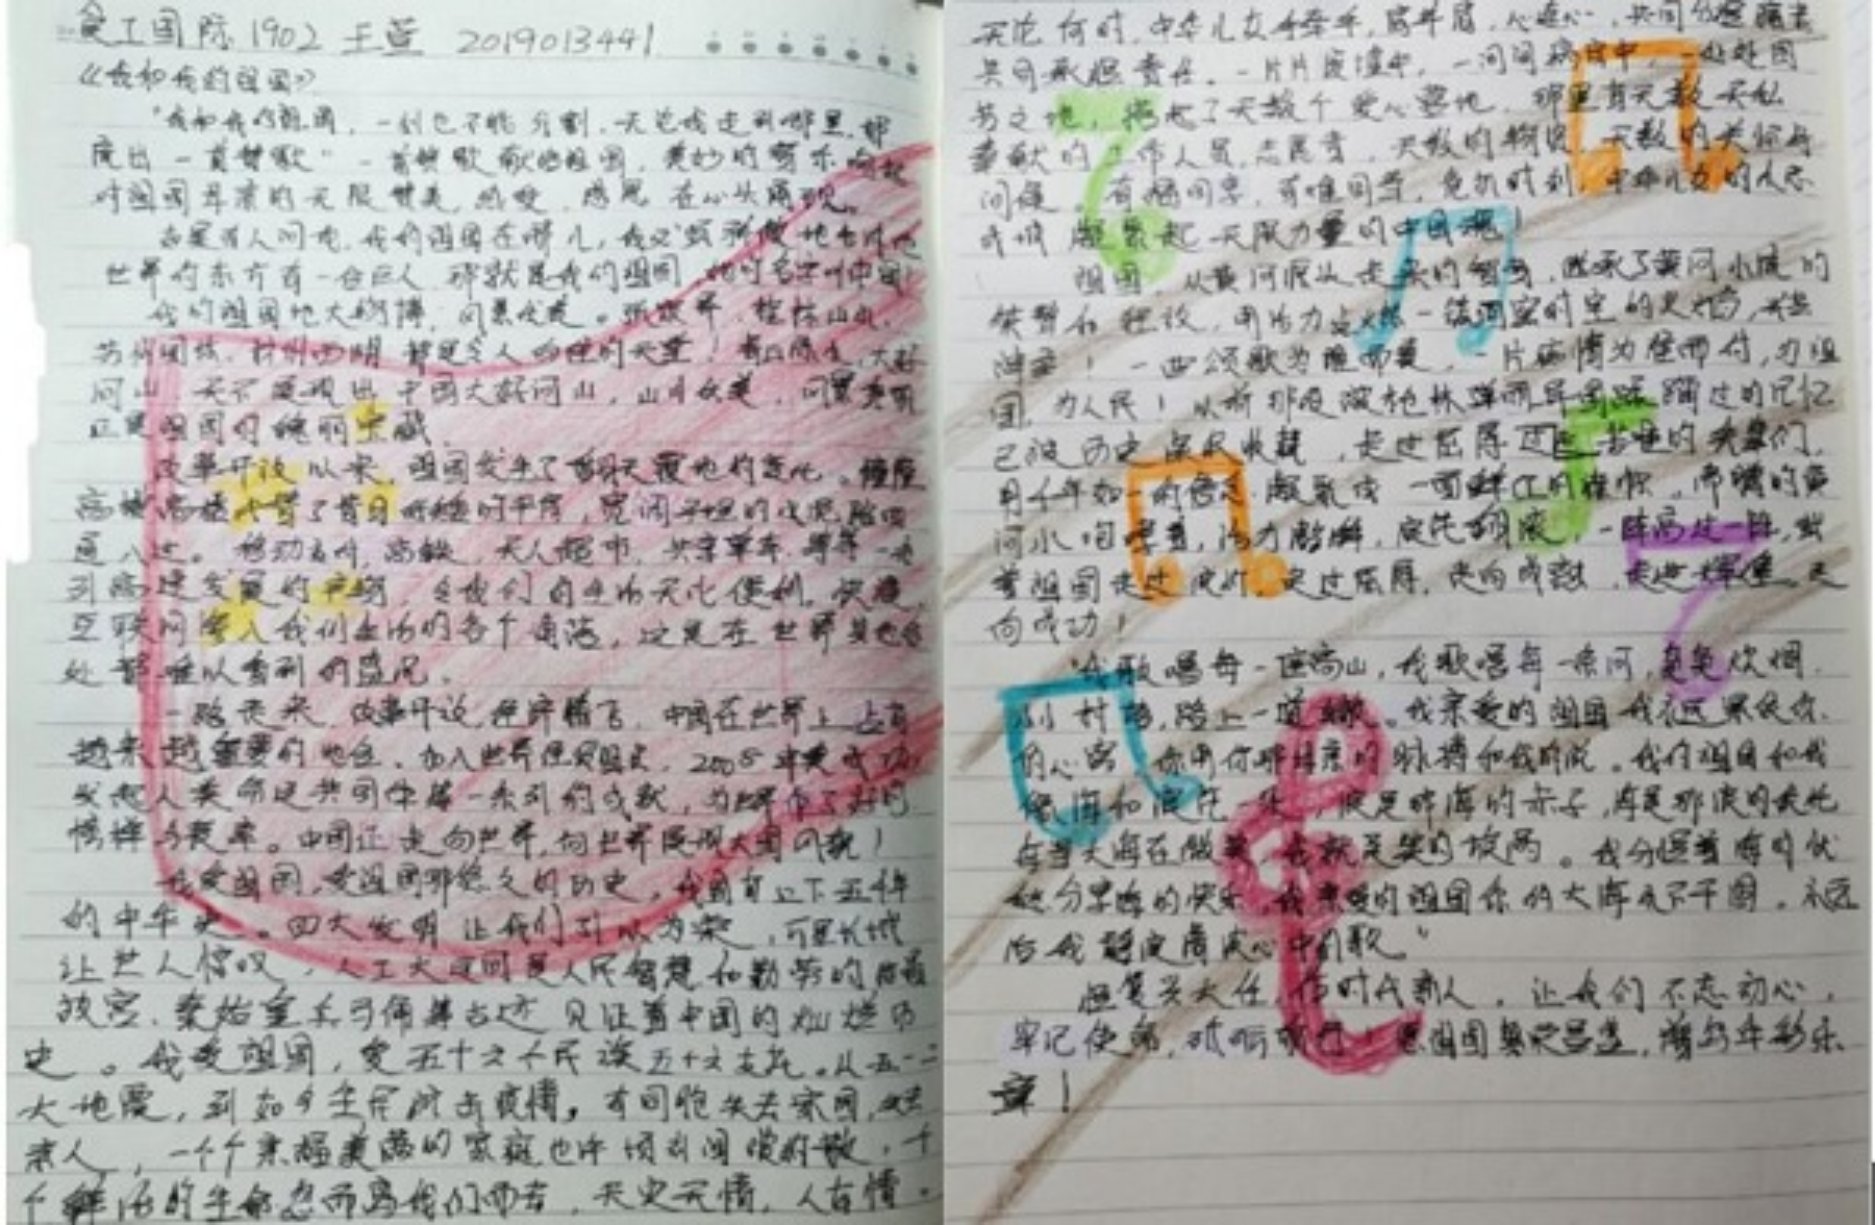 食工国际1902 王萱 2019013441
《我和我的祖国》
"我和我的祖国,一刻也不能分割,无论我走到哪里,都
流出一首赞歌"一首赞歌献给祖国,美妙的音乐
对祖国母亲的无限赞美,热爱,感恩在心头涌现。
若是有人问我,我的祖国在哪儿,我必须骄傲地告诉他
世界的东方有一个巨人,那就是我们祖国,她的名字叫中国!
我的祖国地大物博,风景优美。张家界,桂林山水,
苏州园林,杭州西湖都是令人向往的天堂!青山绿水,大好
河山,无不展现出中国大好河山,山川优美,风景美丽
正是祖国的瑰丽宝藏。
改革开放以来,祖国发生了翻天覆地的变化。幢幢
高楼大厦代替了昔日低矮的平房,宽阔平坦的水泥路四
通八达。移动支付,高铁,无人超市,共享单车,等等一系
列高速发展的产物,令我们的生活无比便利,快捷,
互联网深入我们生活的各个角落,这是在世界其他各
处都难以看到的盛况。
一路走来,改革开放,经济腾飞,中国在世界上占有
越来越重要的地位,加入世界经贸组织,2008年奥运
发起人类命运共同体等一系列的成就,为世界作了好的
榜样与表率。中国正走向世界,向世界展现大国风貌!
我爱祖国,爱祖国那悠久的历史,我国有上下五千年
的中华史。四大发明让我们引以为荣,万里长城
让世人惊叹,人工大运河是人民智慧和勤劳的
故宫,秦始皇兵马俑等古迹见证着中国的灿烂历
史。我爱祖国,爱五十六个民族五十六支花。从五一二
大地震,到如今全民抗击疫情,有同胞失去家园,失去
亲人,一个个幸福美满的家庭也许顷刻间烟消云散,一个
个鲜活的生命忽而离我们而去,天灾无情,人有情。
无论何时,中华儿女手牵手,肩并肩,心连心,共同分担痛苦
共同承担责任。一片片废墟中,一间间病房中,一处处困
苦之地,撑起了无数个爱心营地,那里有无数无私
奉献的工作人员,志愿者,无数的物资,无数的关怀与
问候,有福同享,有难同当,危机时刻,中华儿女的众志
成城凝聚起无限力量的中国魂!
祖国,从黄河源头走来的祖国,继承了黄河水流的
,用活力点燃一簇洞穿时空的火焰,
!一曲颂歌为谁而奏,一片痴情为谁而付,为祖
国,为人民!从前那段被枪林弹雨屈辱蹂躏过的记忆
已被历史深深收藏,走过屈辱迈过苦难的先辈们,
用千年如一的信念凝聚成一面鲜红的旗帜,沸腾的黄
河水咆哮着,活力澎湃,浪花翻滚,一阵高过一阵,载
着祖国走过沧桑,走过屈辱,走向成熟,走进辉煌,走
向成功!
"我歌唱每一座高山,我歌唱每一条河,袅袅炊烟,
小小村落,路上一道辙。我亲爱的祖国我永远紧依你
的心窝,你用你那母亲的脉搏和我诉说。我的祖国和我
像海和浪花一朵,浪是那海的赤子,海是那浪的依托
每当大海在微笑,我就是笑的漩涡。我分担着海的忧
愁分享海的快乐,我亲爱的祖国你的大海永不干涸,永远
给我碧浪清波心中的歌。"
担复兴大任,做时代新人。让我们不忘初心,
牢记使命,砥砺前行,愿祖国繁荣昌盛,谱写华彩乐
章!